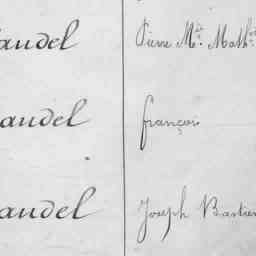 audel Pierre Mie. Math
audel françois
audel Joseph Bastien